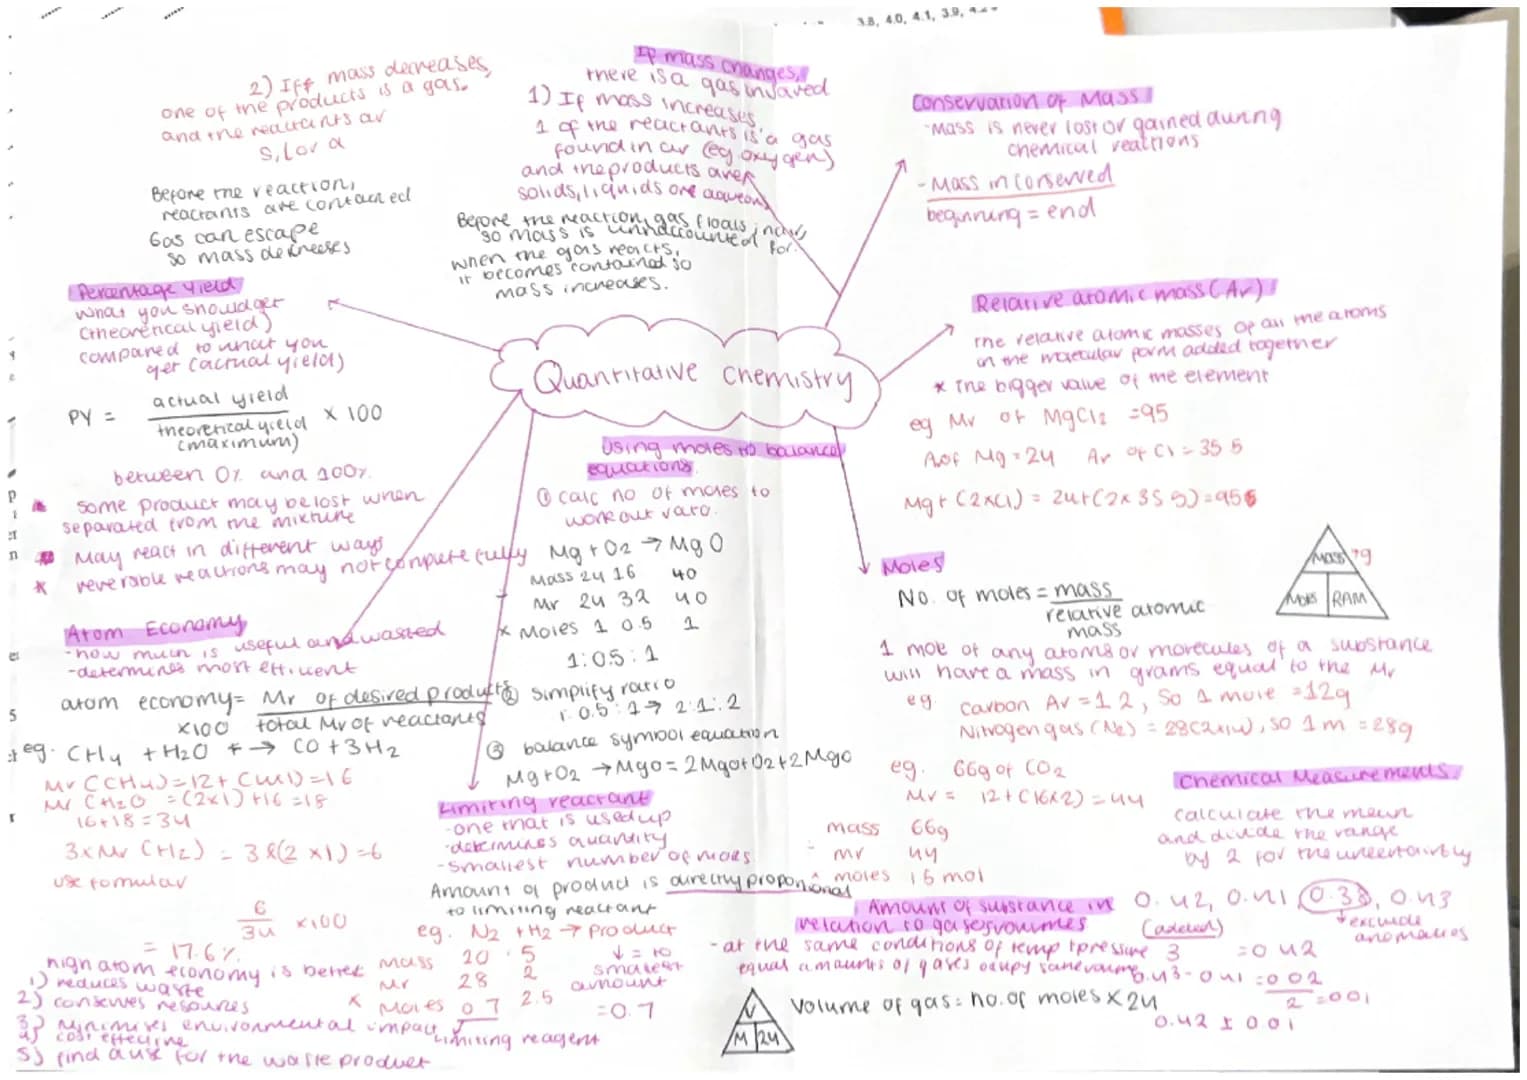 3.8, 4.0, 4.1, 3.9,
2) Iff mass decreases,
one of the products is a gas.
and the reactants ar
s, l or a
Before the reaction,
reactants are contained
Gas can escape
so mass decreases
If mass changes,
there is a gas involved
1) If mass increases,
1 of the reactants is a gas
found in air (eg oxygen)
and the products are
solids, liquids ore aqueous
Before the reaction, gas floats in air,
so mass is unnaccounted for.
when the gas reacts,
it becomes contained so
mass increases.
Conservation of Mass
-Mass is never lost or gained during
chemical reactions
- Mass in conserved
beginning = end
Percentage Yield
what you should get
(theoretical yield)
compared to what you
get (actual yield)
PY = actual yield
theoretical yield
(maximum)
× 100
between 0% and 100%
* some product may be lost when
separated from the mixture
* May react in different ways
* reversible reactions may not complete fully
Quantitative Chemistry
Relative atomic mass (Ar)
The relative atomic masses of all the atoms
in the molecular form added together
* The bigger value of the element
eg Mr of MgCl2 = 95
Ar of Mg = 24 Ar of Cl = 35.5
Mg + (2×Cl) = 24 + (2×35.5) = 95
Using moles to balance
equations.
① calc no of moles to
work out rato.
Mg + O2 → MgO
Mass 24 16 40
Mr 24 32 40
× Moles 1 0.5 1
1 : 0.5 : 1
② Simplify ratio
1 : 0.5 : 1 → 2 : 1 : 2
③ balance symbol equation
Mg + O2 → MgO = 2Mg + O2 → 2MgO
Moles
No. of moles = mass
relative atomic
mass
Mass →g
Moles RAM
1 mole of any atoms or molecules of a substance
will have a mass in grams equal to the Mr
eg. Carbon Ar = 12, So 1 mole = 12g
Nitrogen gas (N2) = 28 (2×14), so 1m = 28g
eg. 66g of CO2
Mr = 12 + (16×2) = 44
mass 66g
mr 44
moles 1.5 mol
Atom Economy
-how much is useful and wasted
-determines most efficient
atom economy = Mr of desired products
total Mr of reactants
×100
eg. CH4 + H2O → CO + 3H2
Mr (CH4) = 12 + (4×1) = 16
Mr (H2O = (2×1) + 16 = 18
16+18 = 34
3×Mr (H2) = 3×(2×1) = 6
use formular
6
34
×100
= 17.6%
high atom economy is better
1) reduces waste
2) conserves resources
3) Minimises environmental impact
4) cost effective
5) find a use for the waste product
Limiting reactant
-one that is used up
-determines quantity
-Smallest number of moles
Amount of product is directly proportional
to limiting reactant
eg. N2 + H2 → Product
Mass 20 5
Mr 28 2
× Moles 0.7 2.5
↓ = to
smallest
amount
= 0.7
Limiting reagent
Chemical Measurements.
calculate the mean
and divide the range
by 2 for the uncertainty
0.42, 0.41, 0.38, 0.43
↑ exclude
anomalies
(added)
3
= 0.42
0.43 - 0.41 = 0.02
2
= 0.01
0.42 ± 0.01
Amount of substance in
relation to gases volumes
-at the same conditions of temp + pressure
equal amounts of gases occupy same volume
Volume of gas = no. of moles × 24
V
M 24